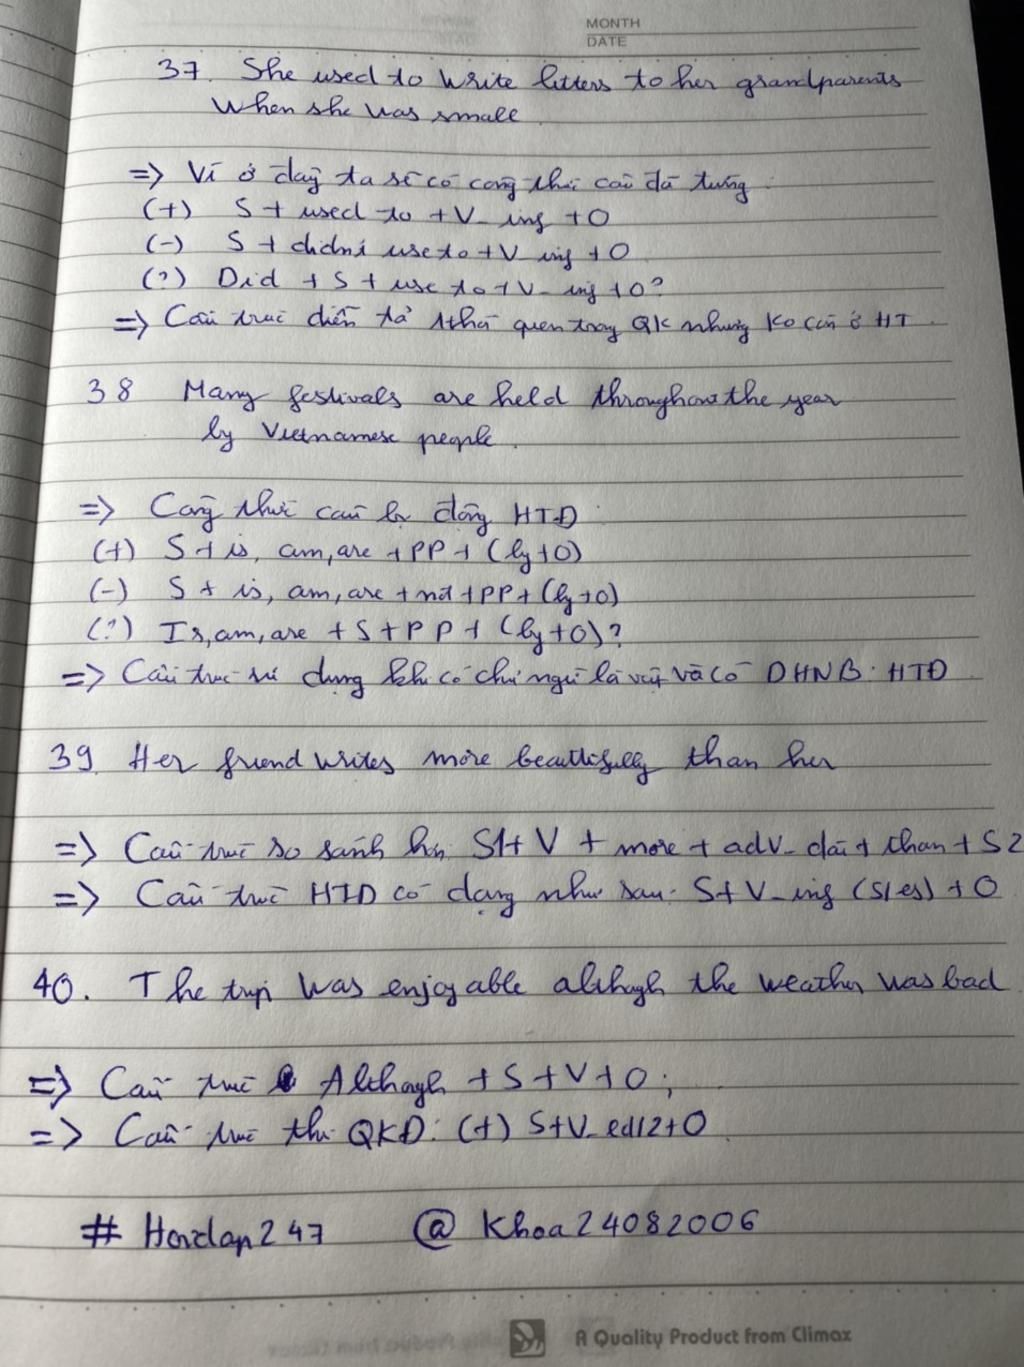 MONTH
DATE
37. She used to write letters to her grandparents
When she was small
=> Vì ở đây ta sẽ có công thức câu đã từng:
(+) S + used to + V_ing + O
(-) S + didn't use to + V_ing + O
(?) Did + S + use to + V_ing + O?
=> Cấu trúc diễn tả thói quen trong QK nhưng ko còn ở HT.
38 Many festivals are held throughout the year
by Vietnamese people.
=> Công thức câu bị động HTĐ:
(+) S + is, am, are + PP + (by + O)
(-) S + is, am, are + not + PP + (by + O)
(?) Is, am, are + S + PP + (by + O)?
=> Cấu trúc sử dụng khi có chủ ngữ là vật và có DHNB: HTĐ
39. Her friend writes more beautifully than her
=> Cấu trúc so sánh hơn S1 + V + more + adv_dài + than + S2
=> Cấu trúc HTD có dạng như sau: S + V_ing (s/es) + O
40. The trip was enjoyable although the weather was bad
=> Cấu trúc Although + S + V + O;
=> Cấu trúc thì QKĐ: (+) S + V_ed/2 + O.
# Hoidap247 @ Khoa24082006
A Quality Product from Climax